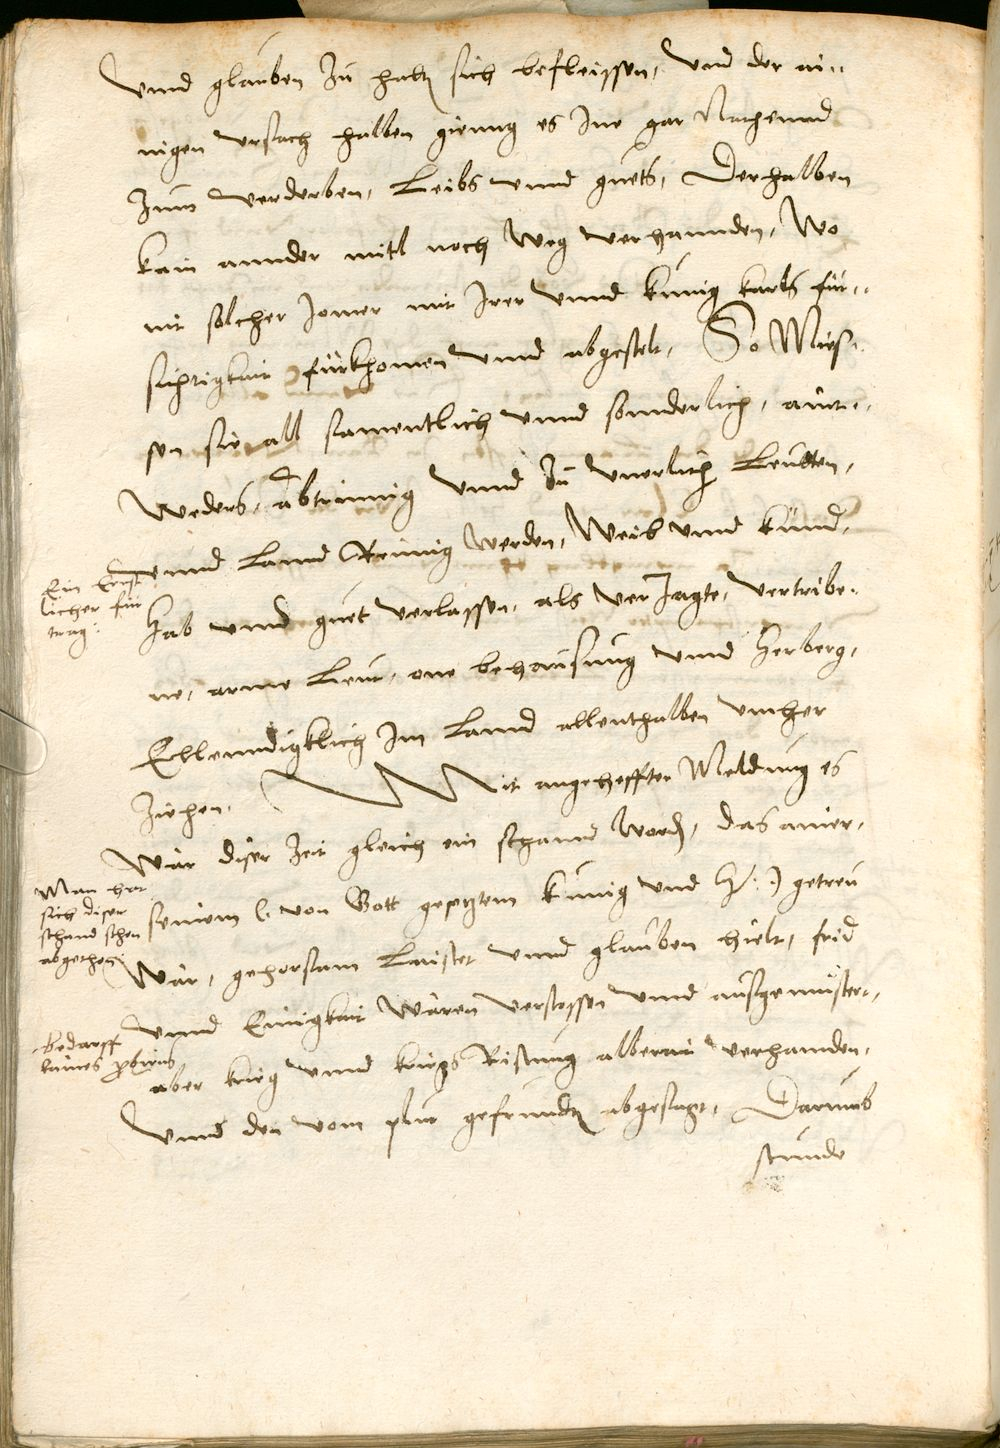 vnnd glauben zu haltn sich befleissen, vnd der ai-
nigen vrsach halben gienng es Ine gar Nachennd
Zum verderben, Leibs vnnd guets, Derhalben
kain annder mitl noch Weg verhannden, Wo
nit solcher Jomer mit Irer vnnd kunig karls für-
sichtigkait fürkhomen vnnd abgestelt, So Mües-
sen sie all samentlich vnnd sonderlich, aint-
weders, Abtrinnig vnnd zu vnerlich Leutten,
vnnd Lannd Reumig werden, Weib vnnd kinnd,
Hab vnnd guet verlassen, als ver Jagte, vertribe-
ne, arme Leut, one behausung vnnd Herberg,
Ellenndigklich Im Land allenthalben vmher
ziehen. Mit angeheffter Meldung es
Wär diser Zeit gleich ein schannd worden, das ainer,
seinem (: von Gott gesetztem kunig vnd H: :) getreu
Wär, gehorsam Laistet vnnd glauben hielt, frid
vnnd Einigkait wären verstossen vnnd ausgemustert,
aber krieg vnnd kriegs Ristung alberait verhannden,
Vnnd den vom pluet gefreundtn abgesagt, Darumb
stunde
Ein Ernst
licher für
trag:
Man hat
sich diser
schand schon
abgethon:
Bedarff
kaines probierns